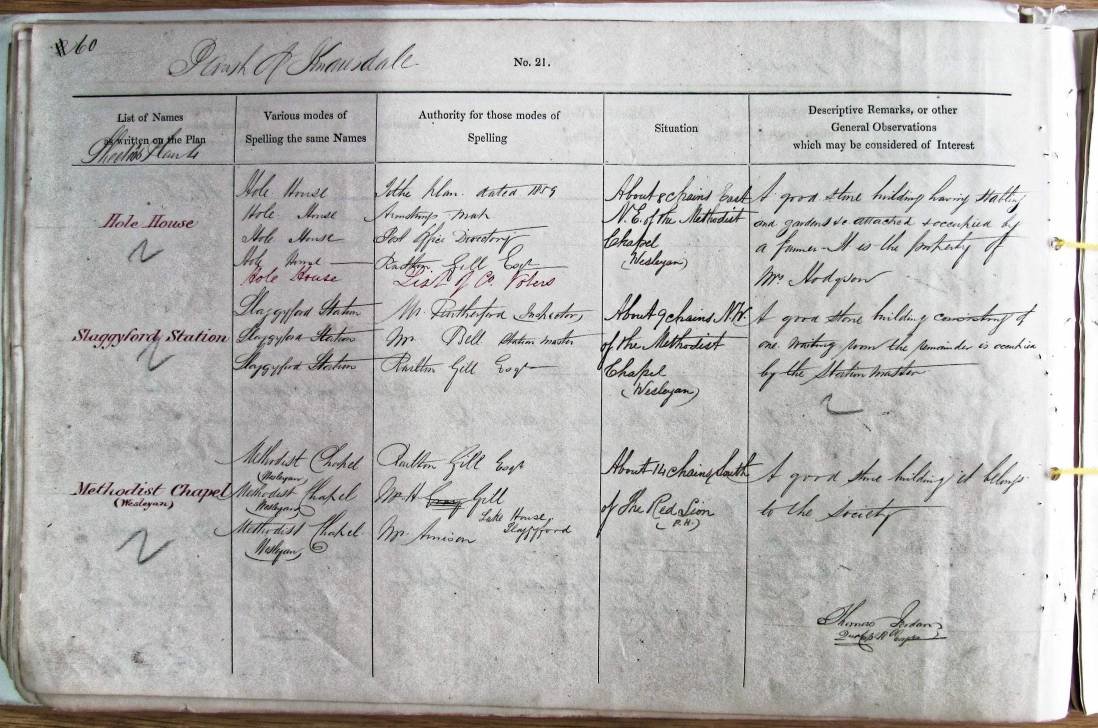 60
Parish of Knarsdale
No. 21.
List of Names
as written on the Plan
Various modes of
Spelling the same Names
Authority for those modes of
Spelling
Situation
Descriptive Remarks, or other
General Observations
which may be considered of Interest
Hole House
Hole House
Hole House
Hole House
Hole House
Hole House
Tithe Plan dated 1859
Armstrongs Map
Post Office Directory
Railton Gill Esqr
List of Co. Voters
About 8 chains East
N.E. of the Methodist
Chapel
(Wesleyan)
A good stone building having stabling
and gardens &c attached & occupied by
a farmer - It is the property of
Mr. Hodgson
Slaggyford Station
Slaggyford Station
Slaggyford Station
Slaggyford Station
Mr. Rutherford Inspector
Mr. Bell Station Master
Railton Gill Esqr
About 9 chains N.W.
of the Methodist
Chapel
(Wesleyan)
A good stone building consisting of
one waiting room the remainder is occupied
by the Station Master
Methodist Chapel
(Wesleyan)
Methodist Chapel
(Wesleyan)
Methodist Chapel
(Wesleyan)
Methodist Chapel
(Wesleyan)
Railton Gill Esqr
Mr. H Gill
Lake House,
Slaggyford
Mr. Arnison
About 14 chains South
of The Red Lion
(P.H.)
A good stone building it belongs
to the Society
Thomas Jordan